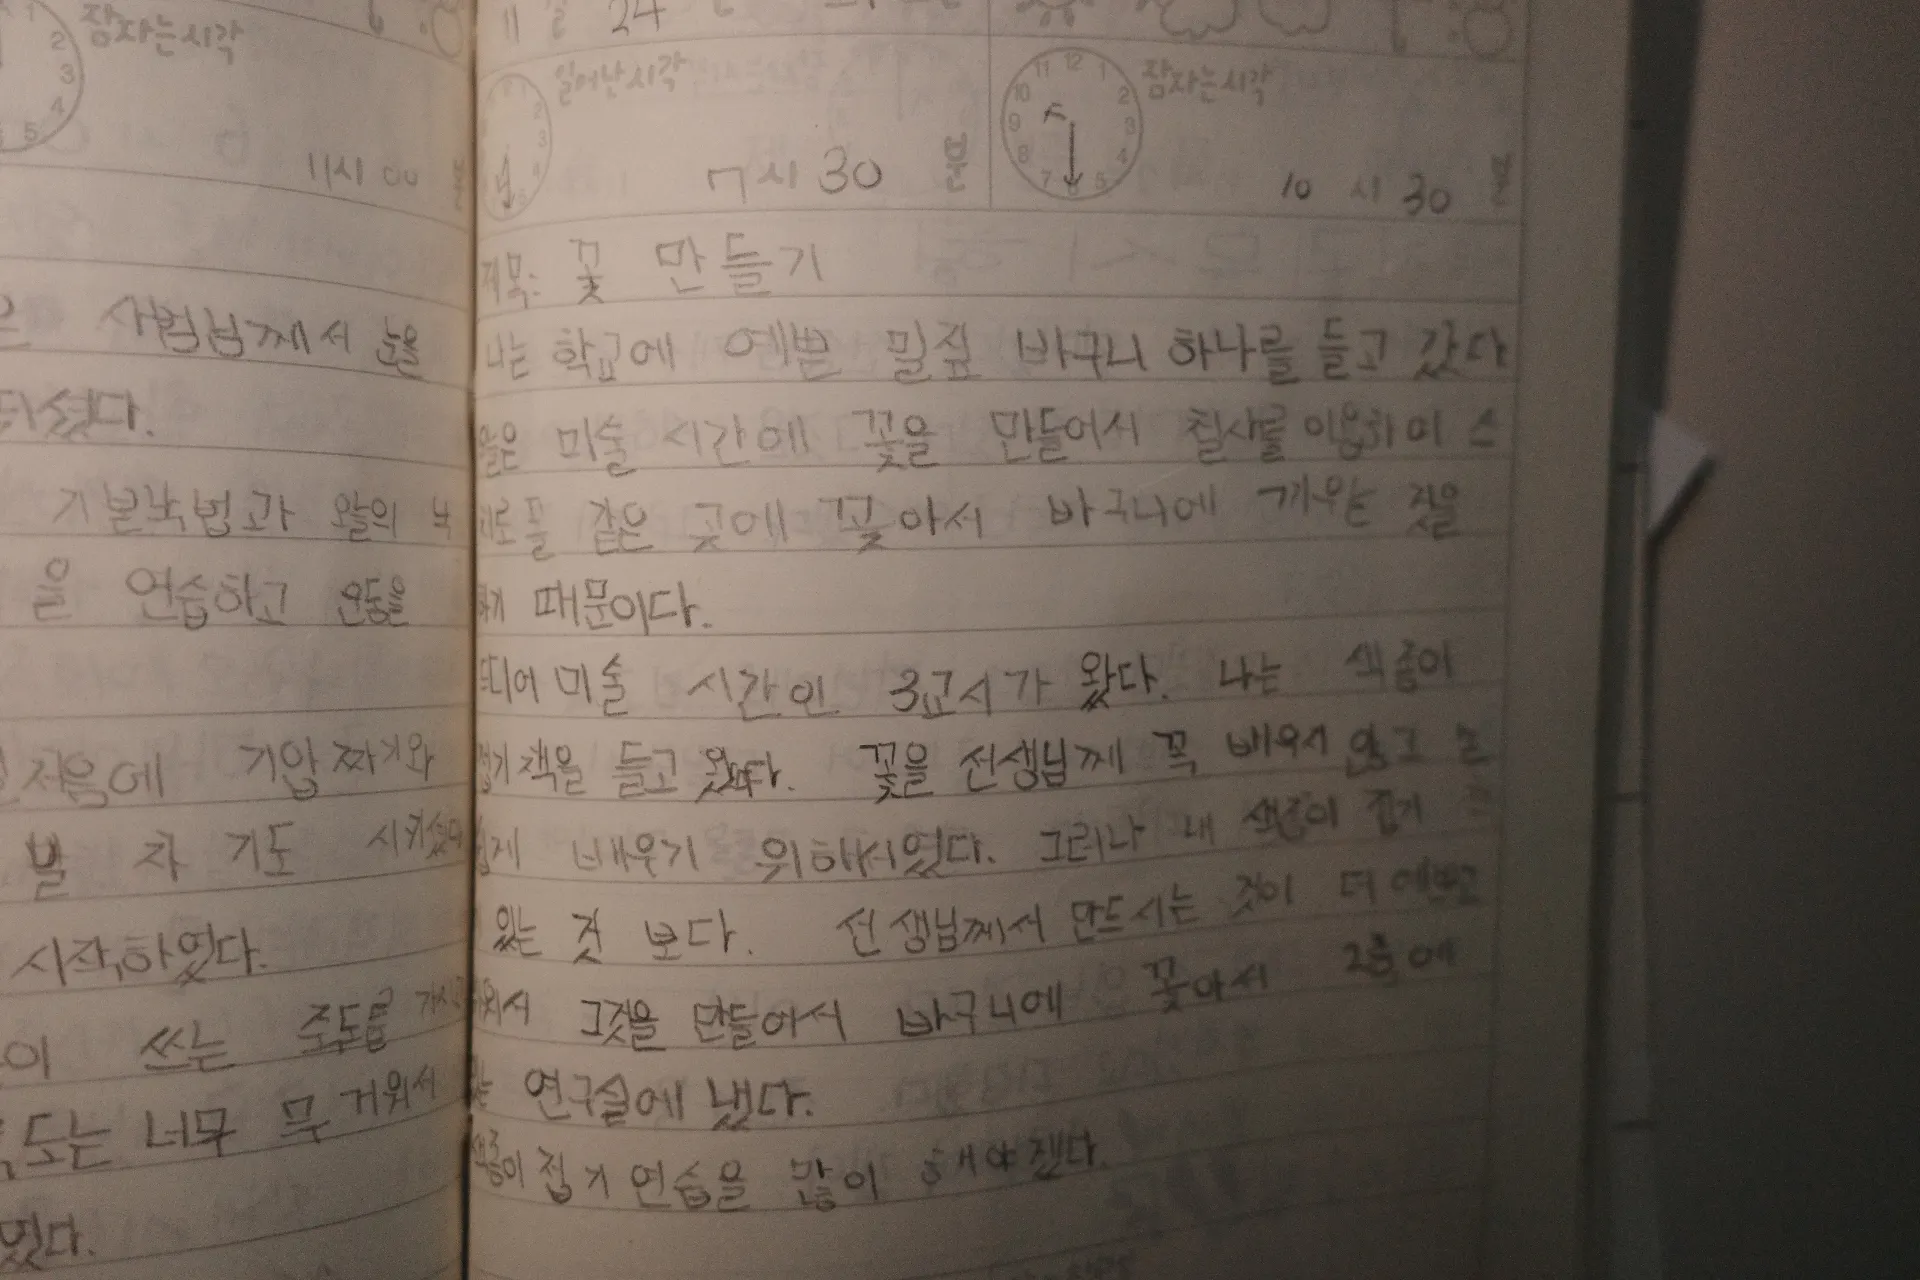 잠자는시각
11시 00
사범님께서 눈을
셨다.
기본낙법과 왈의 낙
을 연습하고 운동을
처음에 기압 짜기와
발 차 기도 시키셨다
시작하였다.
이 쓰는 죽도를
도는 너무 무거워서
였다.
11월 24
일어난시각
7시 30 분
11 12 1 10 2 9 3 8 4 7 6 5
잠자는시각
10시 30 분
제목: 꽃 만들기
나는 학교에 예쁜 밀짚 바구니 하나를 들고 갔다
미술 시간에 꽃을 만들어서 철사를 이용하여 스
로폼 같은 곳에 꽂아서 바구니에 끼우는 것을
하기 때문이다.
드디어 미술 시간인 3교시가 왔다. 나는 색종이
접기 책을 들고 왔다. 꽃을 선생님께 꼭 배우지 않고
쉽게 배우기 위하서였다. 그러나 내 색종이 접기
있는 것 보다. 선생님께서 만드시는 것이 더 예쁘고
워서 그것을 만들어서 바구니에 꽂아서 2층에
있는 연구실에 냈다.
색종이 접기 연습을 많이 해야겠다.